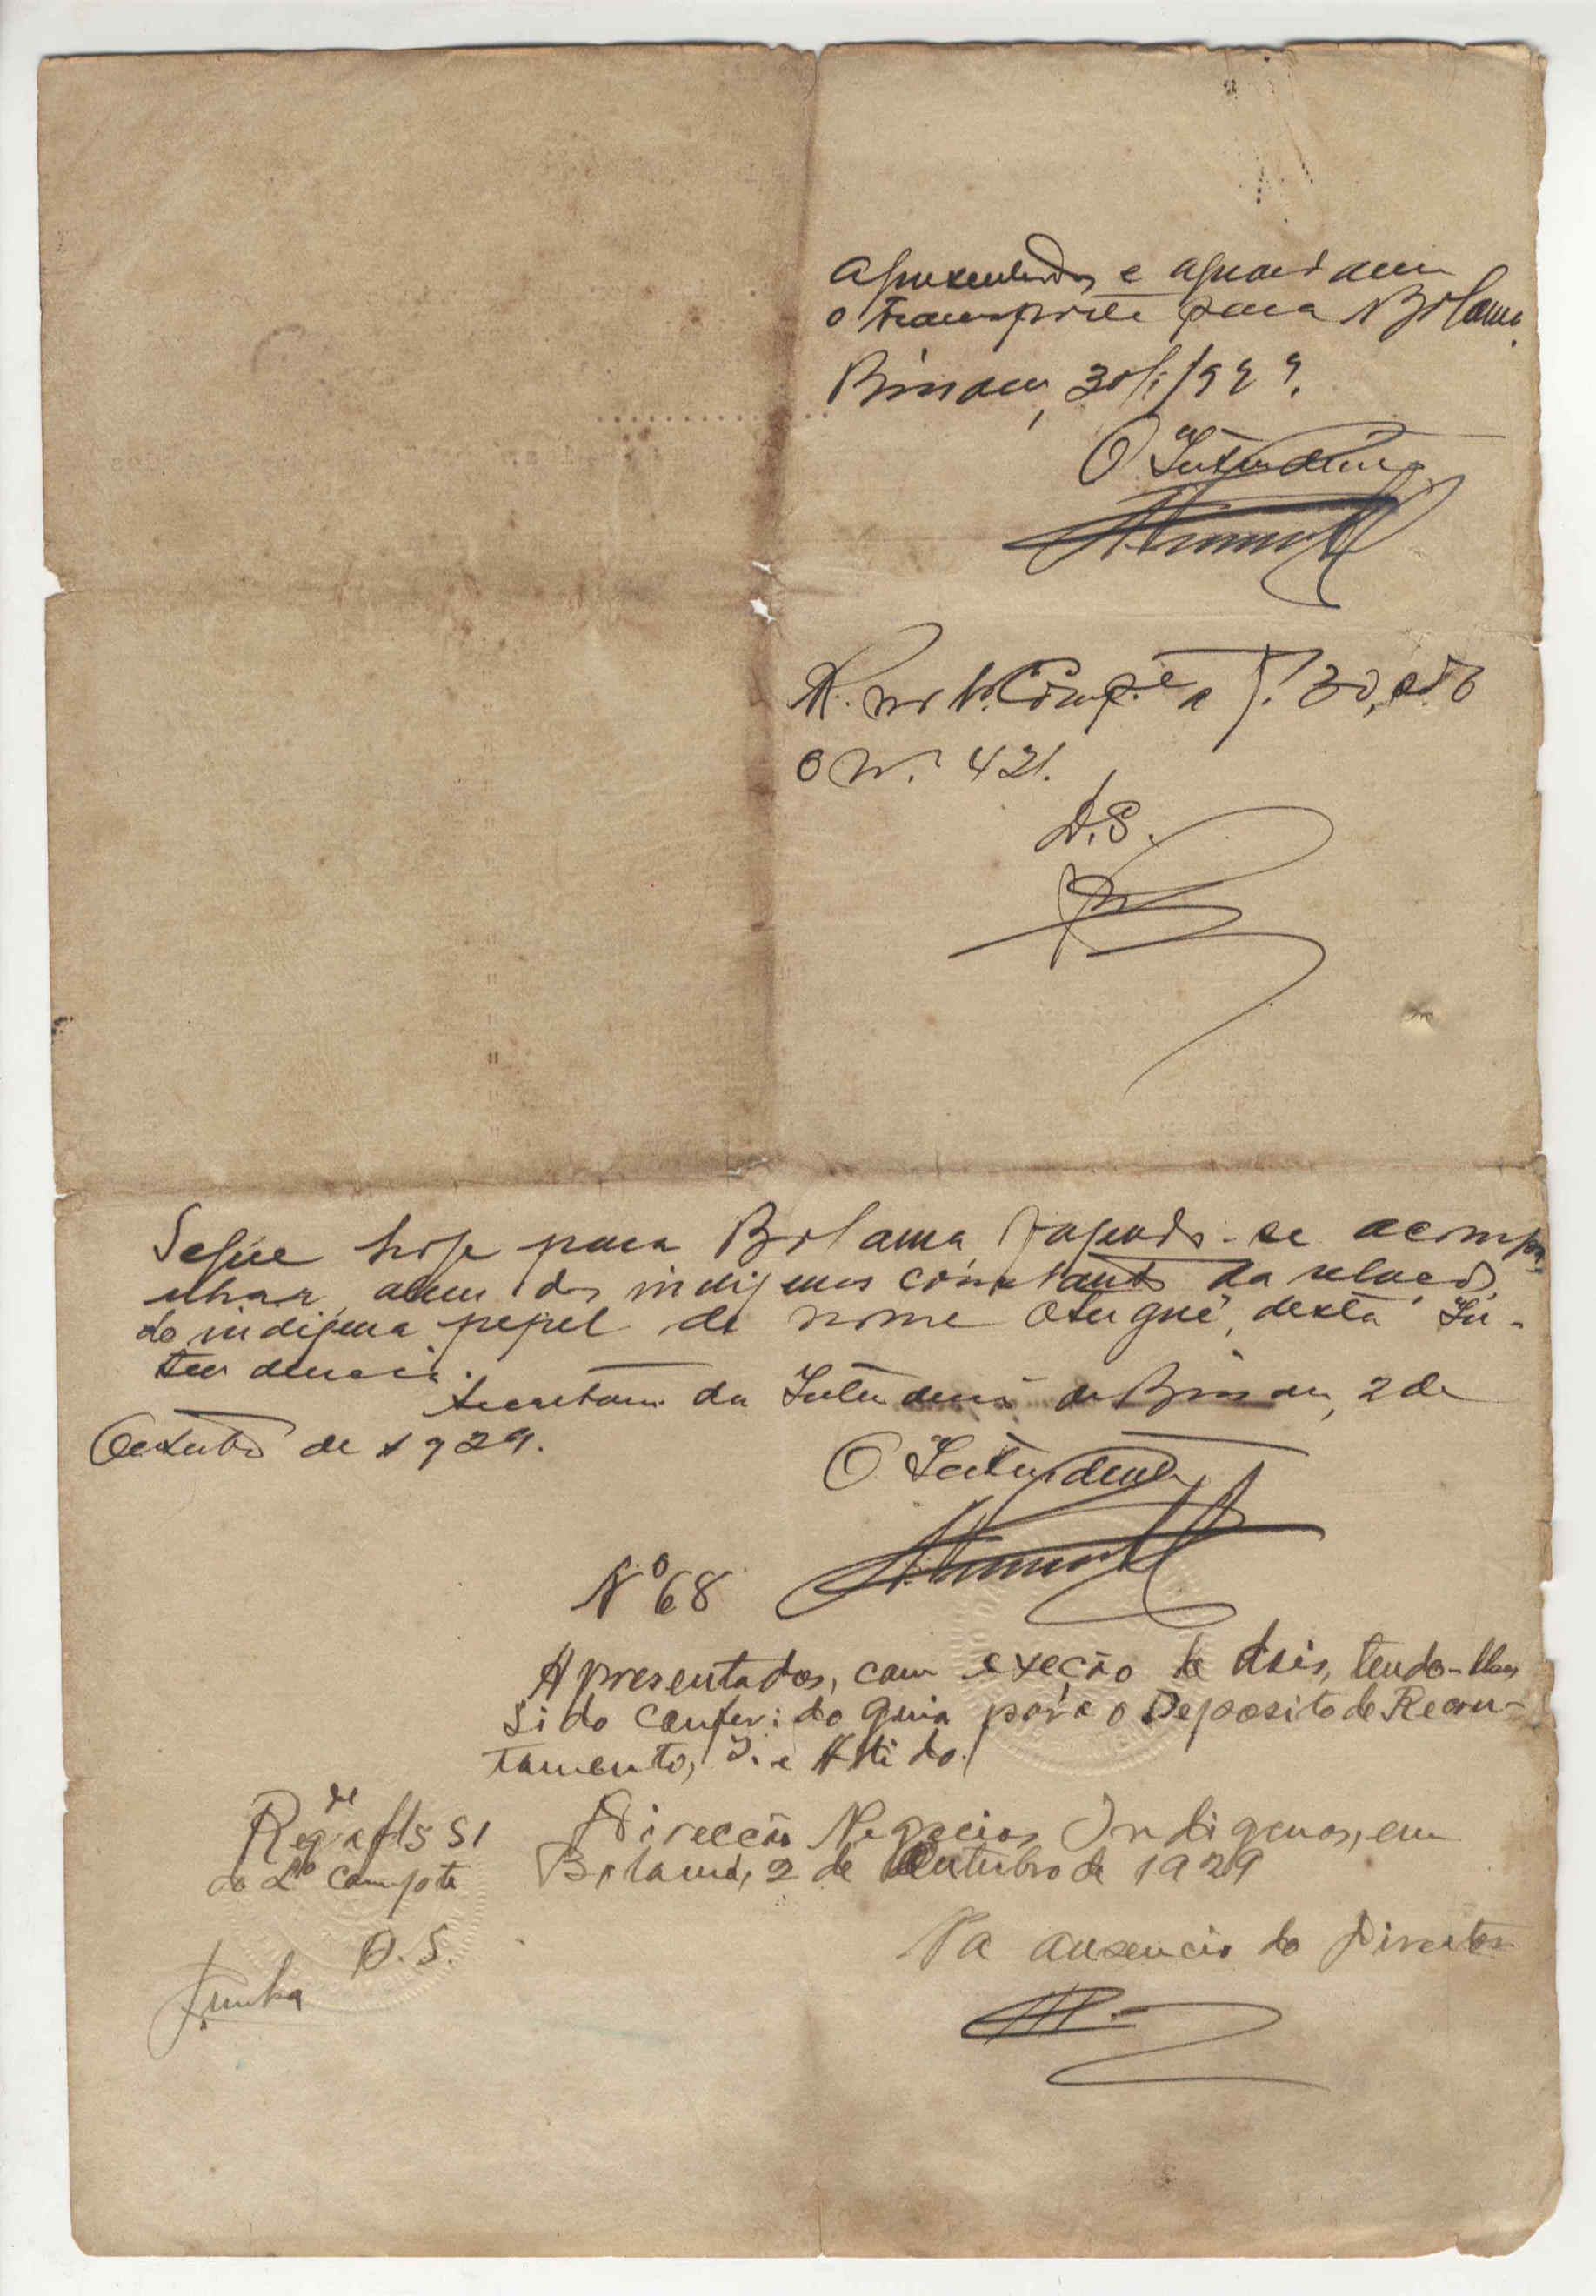 Apresentados e aguardam
o transporte para Bolama.
Bissau, 30/9/929.
O Intendente
R. no L. Comp.e a f. 30, sob
o N.º 421.
D.S.
Segue hoje para Bolama fazendo-se acompa-
nhar, alem dos indigenas constantes da relação,
do indigena pepel de nome, desta In-
tendencia.
Secretaria da Intendencia de Bissau, 2 de
Outubro de 1929.
O Intendente
Nº 68
Apresentados, com exeção de dois, tendo-lhes
sido conferido guia para o Deposito de Recru-
tamento, I. e
Reg.de a fls 51
do Lº compte
O. S.
Cunha
Direcção Negocios Indigenas, em
Bolama, 2 de Outubro de 1929
Na ausencia do Director